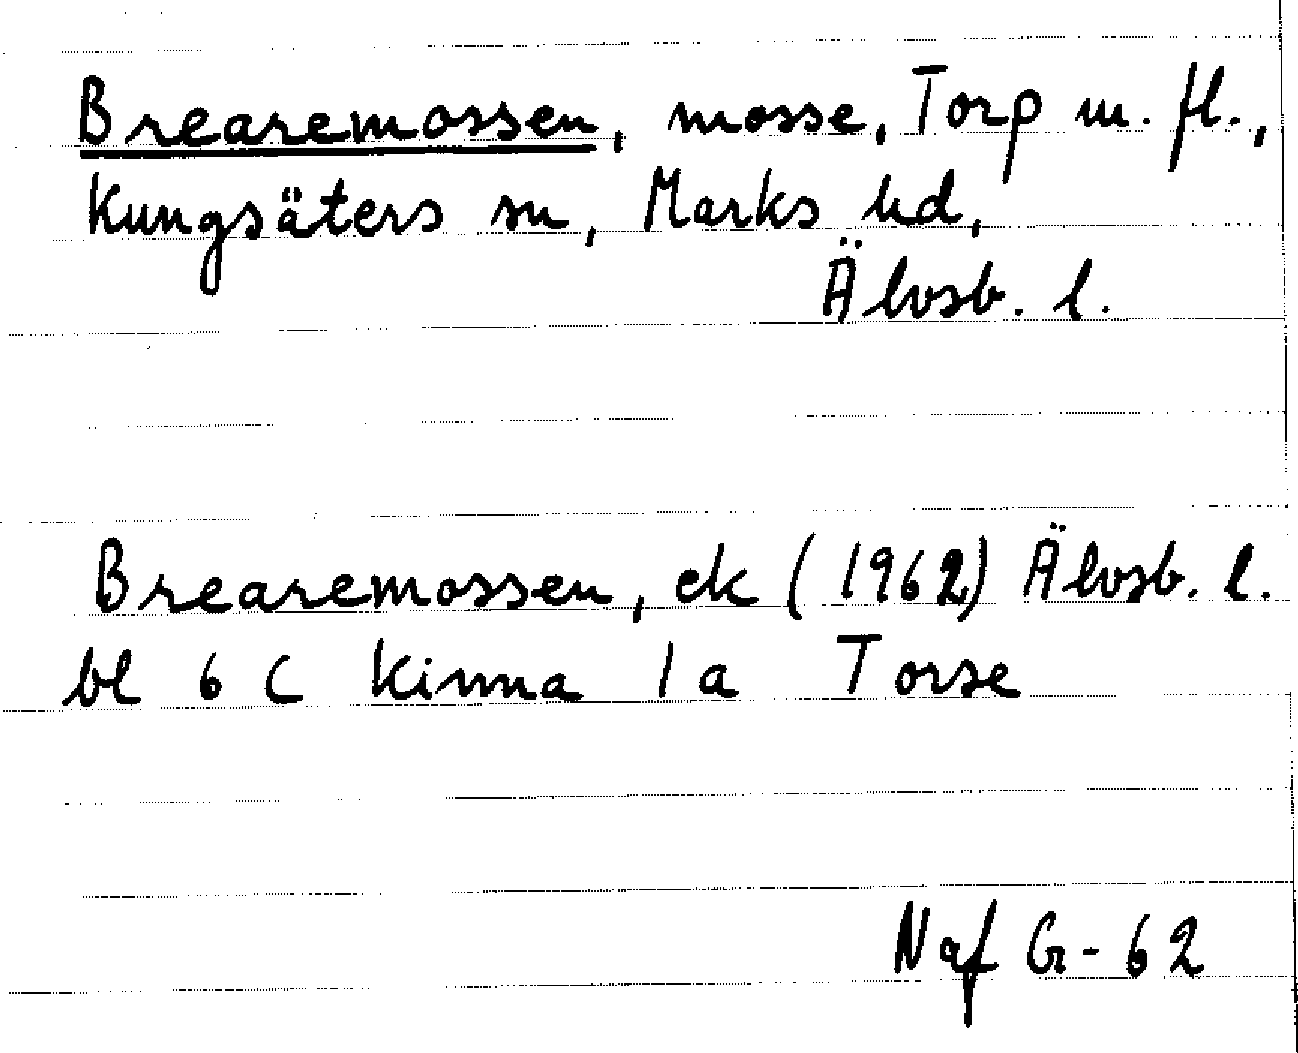 Brearemossen, mosse, Torp m. fl.,
Kungsäters sn, Marks hd,
Älvsb. l.
Brearemossen, ek (1962) Älvsb. l.
bl 6 C Kinna 1 a Torse
Naf G-62